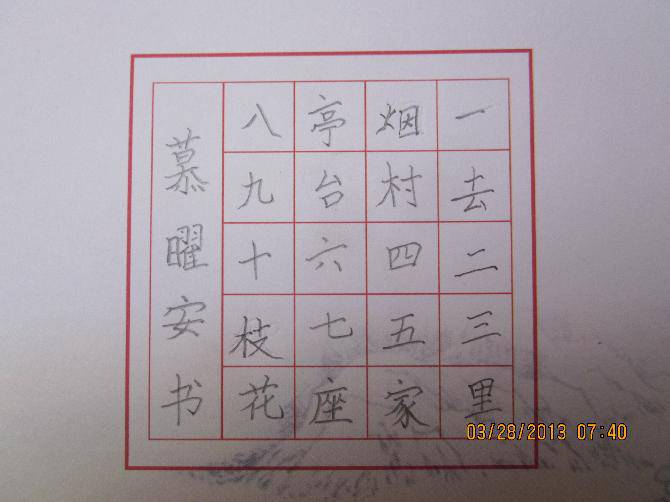 一去二三里
烟村四五家
亭台六七座
八九十枝花
慕曜安书
03/28/2013 07:40